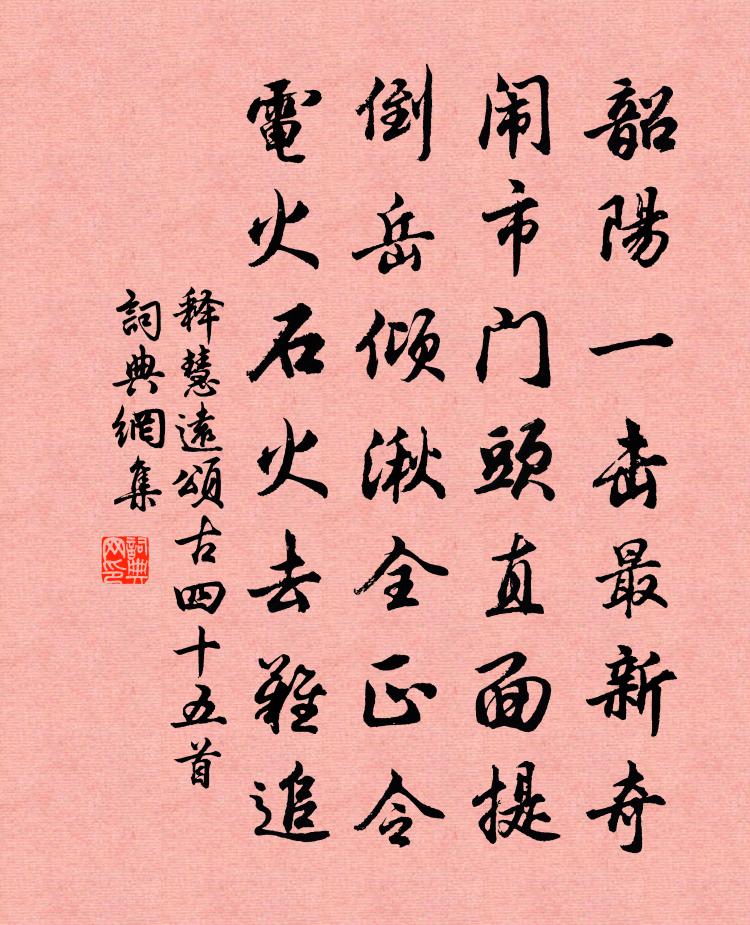 韶陽一击最新奇
闹市门頭直面提
倒岳傾湫全正令
電火石火去難追
释慧遠頌古四十五首
詞典網集
詞典网印